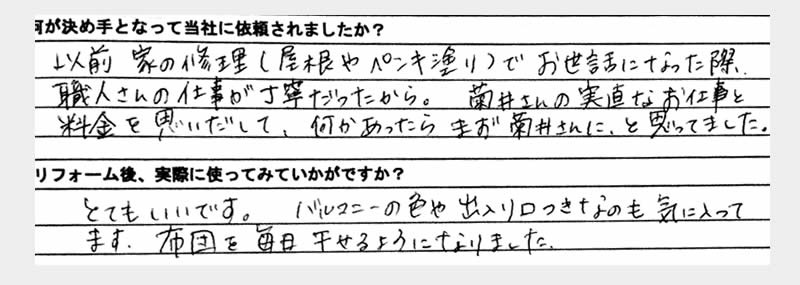 何が決め手となって当社に依頼されましたか？
以前 家の修理（屋根やペンキ塗り）で お世話になった際、
職人さんの仕事が丁寧だったから。 菊井さんの実直なお仕事と
料金を思いだして、何かあったら まず菊井さんに、と思ってました。
リフォーム後、実際に使ってみていかがですか？
とてもいいです。 バルコニーの色や出入り口つきなのも気に入って
ます. 布団を毎日干せるようになりました.